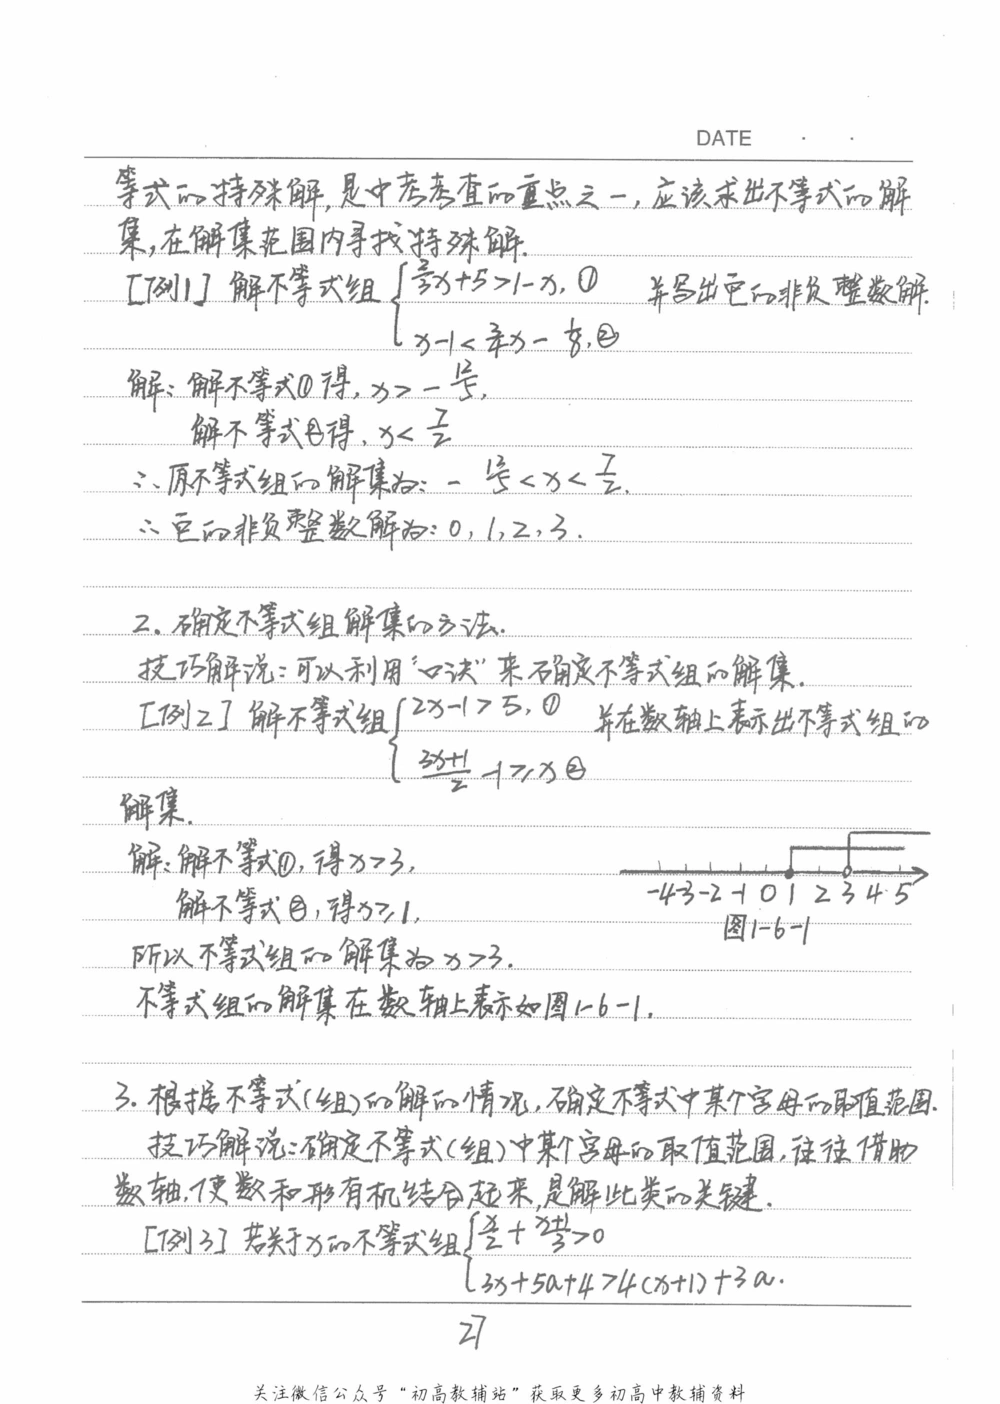 DATE · ·
等式的特殊解,是中考考查的重点之一,应该求出不等式的解
集,在解集范围内寻找特殊解.
[例1] 解不等式组 { 2/3x+5>1-x, ① 并写出它的非负整数解.
x-1<3/4x-1/8, ②
解: 解不等式①得, x>-12/5,
解不等式②得, x<7/2
∴原不等式组的解集为: -12/5<x<7/2.
∴它的非负整数解为: 0, 1, 2, 3.
2. 确定不等式组解集的方法.
技巧解说: 可以利用“口诀”来确定不等式组的解集.
[例2] 解不等式组 { 2x-1>5, ① 并在数轴上表示出不等式组的
(3x+1)/2-1≥x ②
解集.
解: 解不等式①, 得x>3,
解不等式②, 得x≥1,
-4-3-2-1 0 1 2 3 4 5
图1-6-1
所以不等式组的解集为x>3.
不等式组的解集在数轴上表示如图1-6-1.
3. 根据不等式(组)的解的情况,确定不等式中某个字母的取值范围.
技巧解说: 确定不等式(组)中某个字母的取值范围,往往借助
数轴,使数和形有机结合起来,是解此类的关键.
[例3] 若关于x的不等式组 { x/2+(x+1)/3>0
3x+5a+4>4(x+1)+3a.
27
关注微信公众号“初高教辅站”获取更多初高中教辅资料